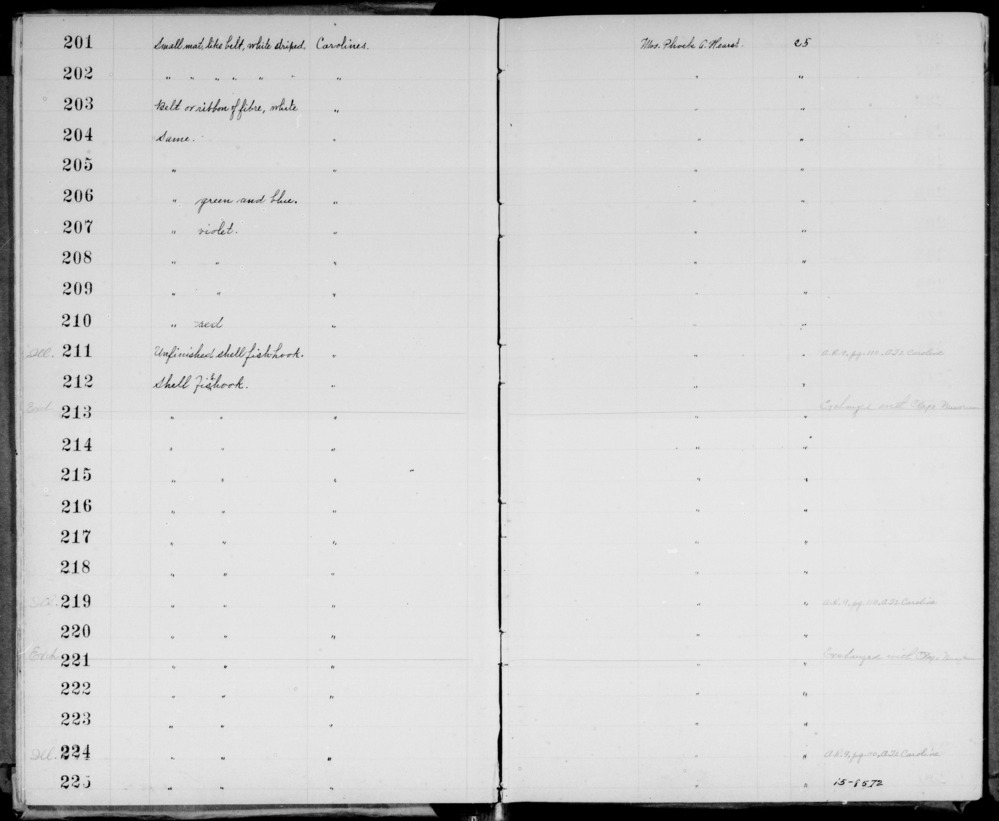 201 Small mat, like belt, white striped. Carolines. Mrs. Phoebe A. Hearst. 25
202 " " " " " " " " "
203 Belt or ribbon of fibre, white " " "
204 Same. " " "
205 " " " "
206 " green and blue. " " "
207 " violet. " " "
208 " " " " "
209 " " " " "
210 " red " " "
Ill. 211 Unfinished shell fish hook. " " " Caroline
212 Shell Fishhook. " " "
Exch. 213 " " " " " Exchanged with
214 " " " " "
215 " " " " "
216 " " " " "
217 " " " " "
218 " " " " "
Ill. 219 " " " " " Caroline
220 " " " " "
Exch. 221 " " " " " Exchanged with
222 " " " " "
223 " " " " "
Ill. 224 " " " " " Caroline
225 " " " " " 15-8572